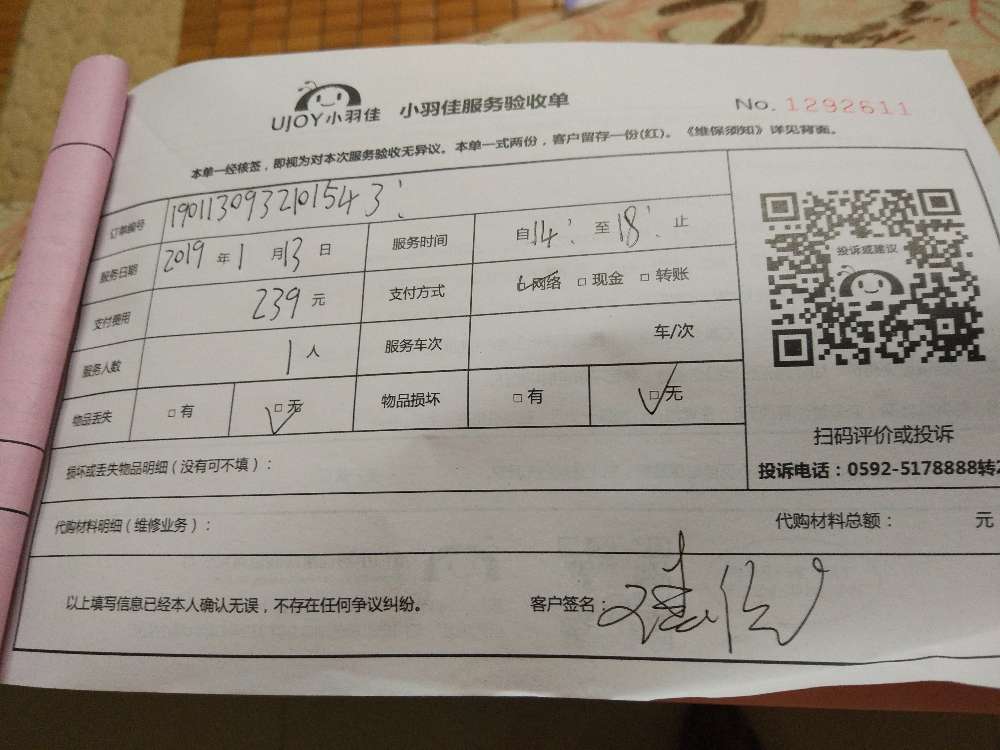 UJOY小羽佳 小羽佳服务验收单 No. 1292611
本单一经核签，即视为对本次服务验收无异议。本单一式两份，客户留存一份(红)。《维保须知》详见背面。
订单编号 190113093210154 3
服务日期 2019 年 1 月 13 日 服务时间 自 14: 至 18: 止
投诉或建议
支付费用 239 元 支付方式 网络 □ 现金 □ 转账
服务人数 1 人 服务车次 车/次
物品丢失 □ 有 □ 无 物品损坏 □ 有 □ 无
扫码评价或投诉
损坏或丢失物品明细（没有可不填）：
投诉电话：0592-5178888转2
代购材料明细（维修业务）： 代购材料总额： 元
以上填写信息已经本人确认无误，不存在任何争议纠纷。 客户签名：